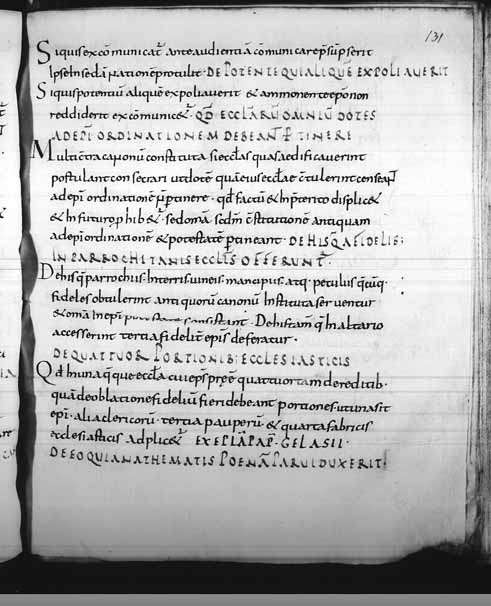 131
Siquis excōmunicat' ante audientiā cōmunicare p̄sūpserit
Ipse in se dāṇationē protulit. DE POTENTE QUI ALIQUĒ EXPOLIAUERIT
Siquis potentiū aliquē expoliauerit & ammonente ep̄o non
reddiderit excōmunice&. QD̄ ECCLARŪ OMNIŪ DOTES
AD EPI ORDINATIONEM DEBEAN̄T PTINERE
Multi c̄tra canonū constituta si ecclas quas aedificauerint
postulant consecrari ut dotē quā eius ecclae c̄tulerint
ad epi ordinationē pertinere. qd̄ factū & in p̄terito displic&
& in futurū phib&. sed omā sedm̄ c̄stitutionē antiquam
ad epi ordinationē & potestatē ptineant. DE HIS QAE FIDELES
IN PARROCHITANIS ECCLIS OFFERUNT.
De his q̄ parrochiis in terris uineis mancipiis atq. peculiis
fideles obtulerint antiquorū canonū instituta seruentur
& omā in epi potestate consistant. De his tam q̄ in altario
accesserint tertia fidelit̄ epis deferatur.
DE QUATTUOR PORTIONIB; ECCLESIASTICIS
Qd̄ in unaquaque eccla cui eps p̄ee quattuor tam de reditib.
quā de oblatione fideliū fieri debeant portiones ut una sit
epi. alia clericorū. tertia pauperū & quarta fabricis
ecclesiasticis adplice&. EX EPLA PAP. GELASII.
DE EO QUI ANATHEMATIS POENĀ PARUI DUXERIT.